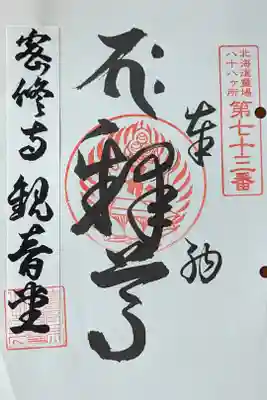 北海道霊場
八十八ヶ所
第七十三番
奉
納
釋尊
密修寺 観音堂